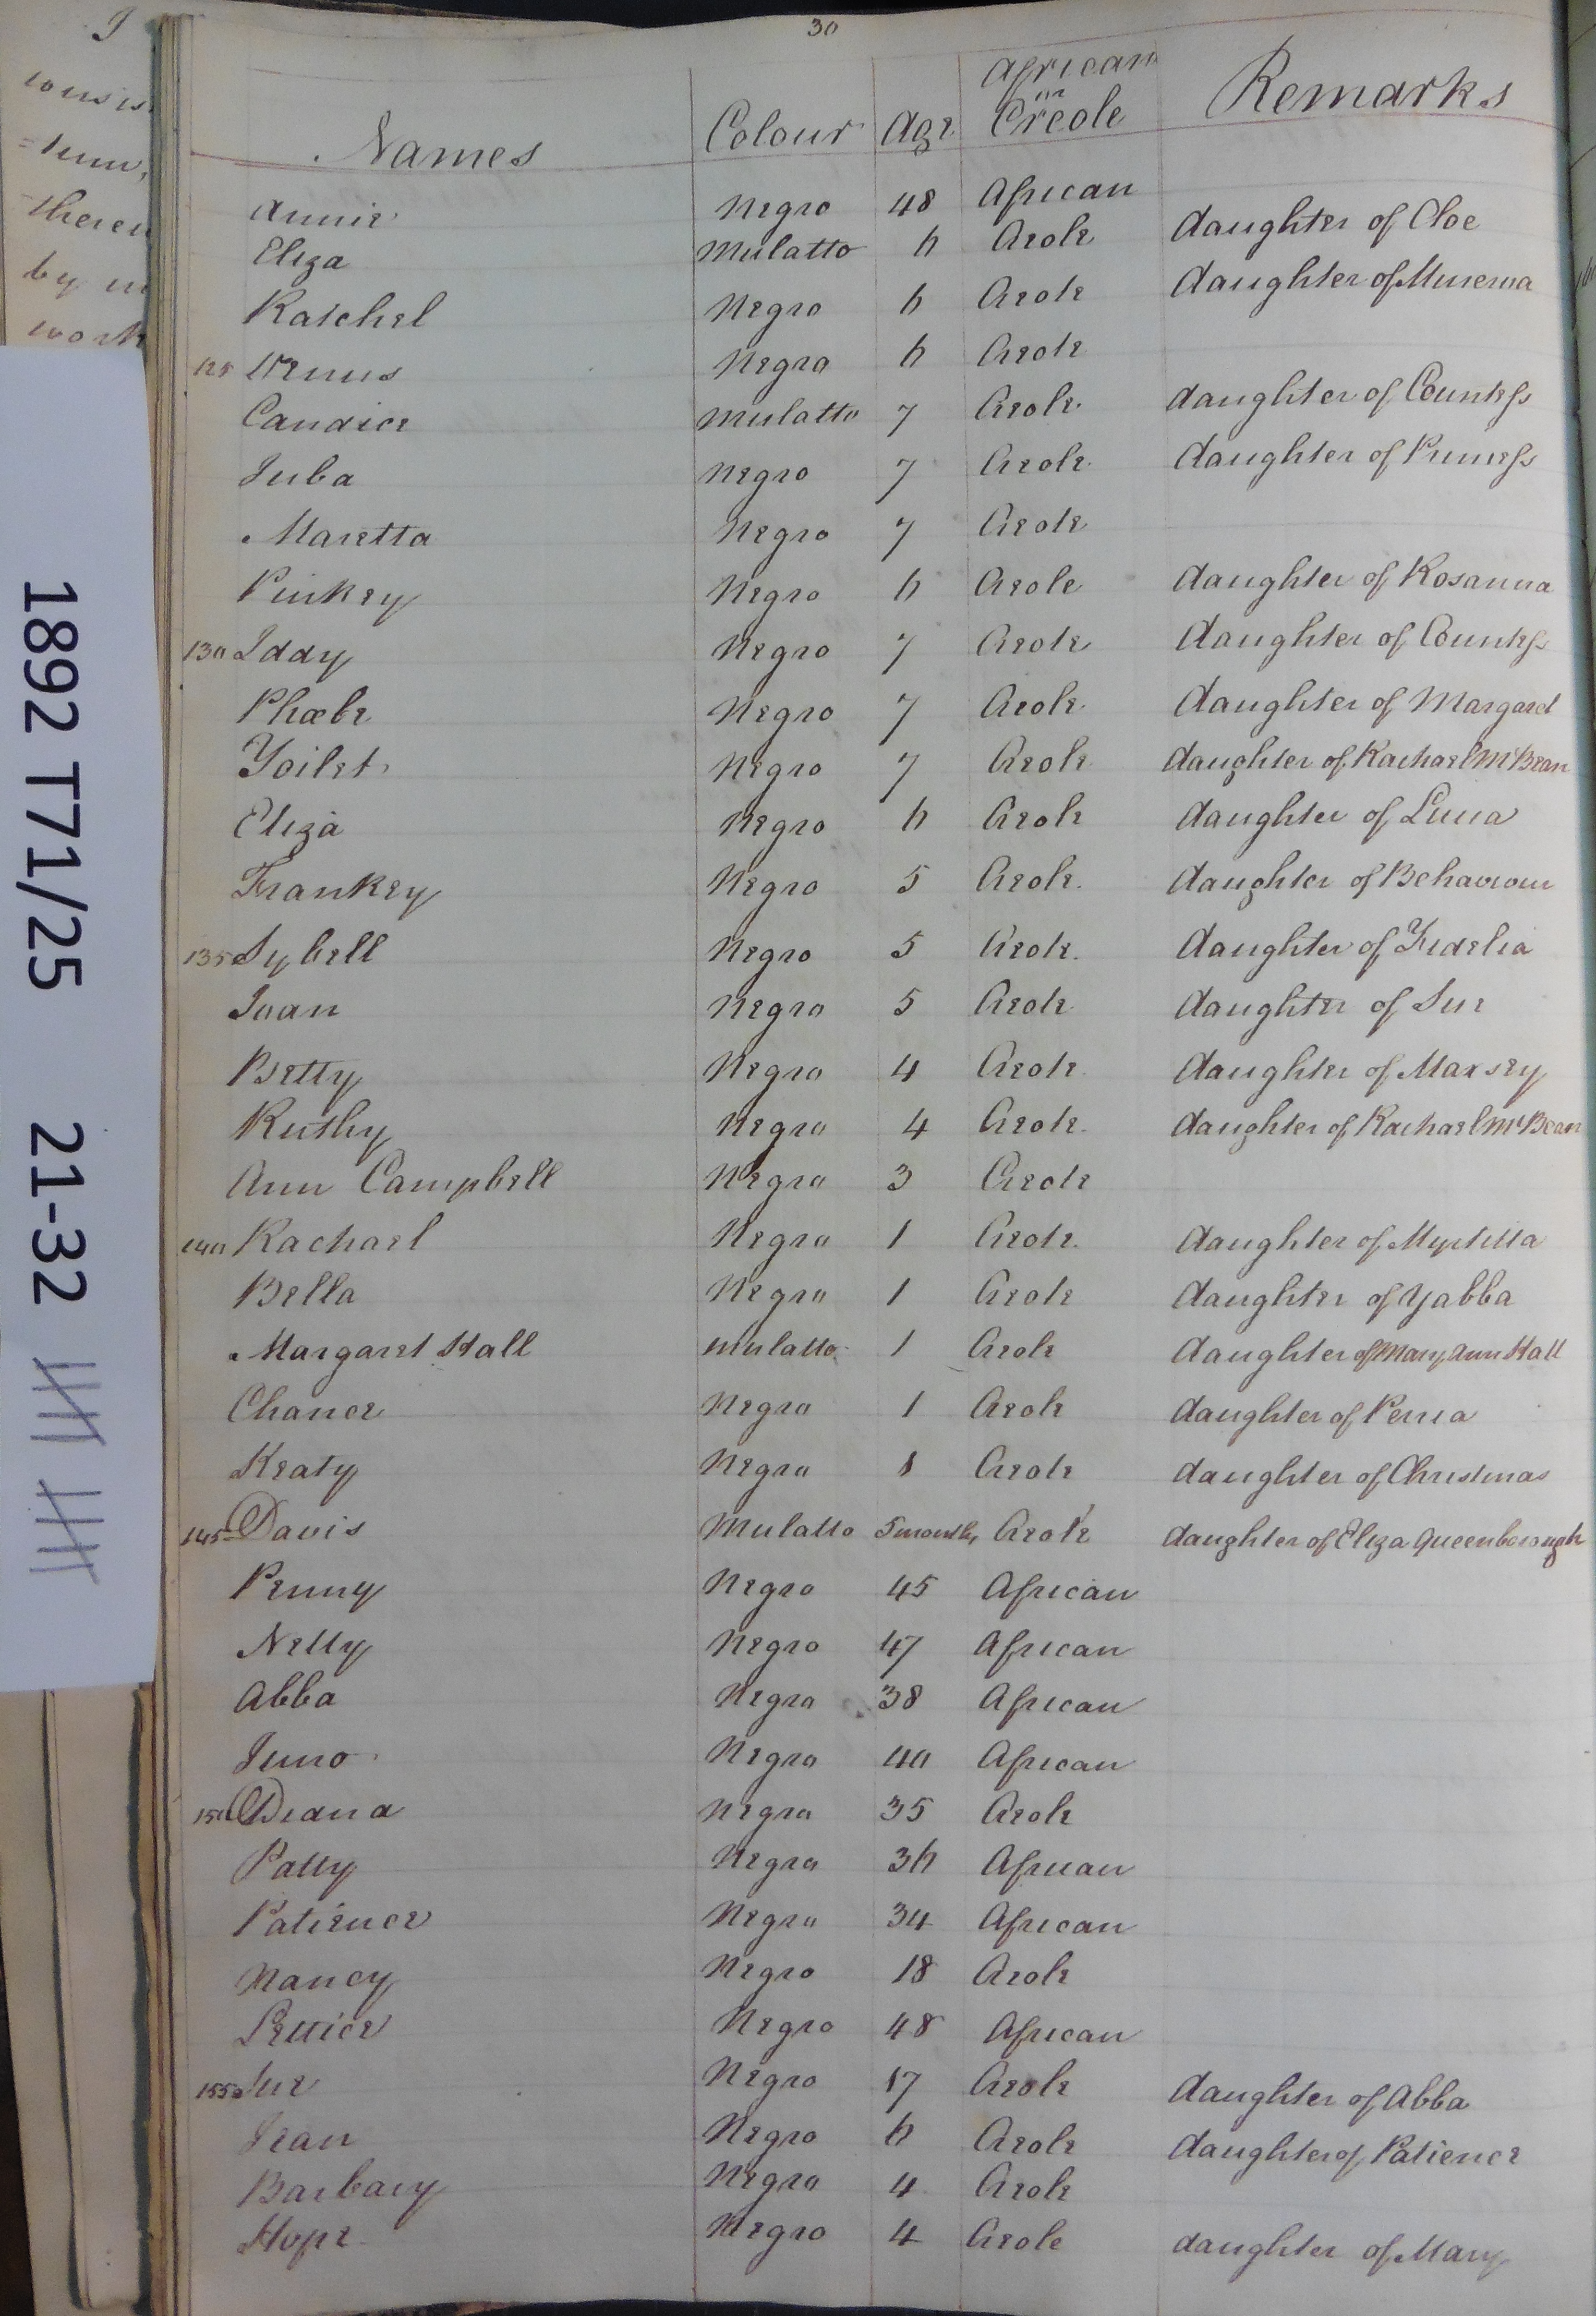 30
Names Colour Age African or Creole Remarks
Annie Negro 48 African
Eliza Mulatto 6 Creole daughter of Cloe
Ratchel Negro 6 Creole daughter of Minerva
125 Venus Negro 6 Creole
Candice Mulatto 7 Creole daughter of Countess
Juba Negro 7 Creole daughter of Princess
Maretta Negro 7 Creole
Pinkey Negro 6 Creole daughter of Rosanna
130 Iddy Negro 7 Creole daughter of Countess
Phœbe Negro 7 Creole daughter of Margaret
Violet Negro 7 Creole daughter of Rachael McBean
Eliza Negro 6 Creole daughter of Luna
Frankey Negro 5 Creole daughter of Behaviour
135 Sybell Negro 5 Creole daughter of Fidelia
Joan Negro 5 Creole daughter of Sue
Betty Negro 4 Creole daughter of Maxsey
Ruthy Negro 4 Creole daughter of Rachael McBean
Ann Campbell Negro 3 Creole
140 Rachael Negro 1 Creole daughter of Myrtilla
Bella Negro 1 Creole daughter of Yabba
Margaret Hall Mulatto 1 Creole daughter of Mary Ann Hall
Chance Negro 1 Creole daughter of
Keaty Negro 1 Creole daughter of Christmas
145 Davis Mulatto 5 months Creole daughter of Eliza Queenborough
Penny Negro 45 African
Nelly Negro 47 African
Abba Negro 38 African
Juno Negro 40 African
150 Diana Negro 35 Creole
Patty Negro 36 African
Patience Negro 34 African
Nancy Negro 18 Creole
Lettice Negro 48 African
155 Sue Negro 17 Creole daughter of Abba
Jean Negro 6 Creole daughter of Patience
Barbary Negro 4 Creole
Hope Negro 4 Creole daughter of Mary
1892 T71/25 21-32